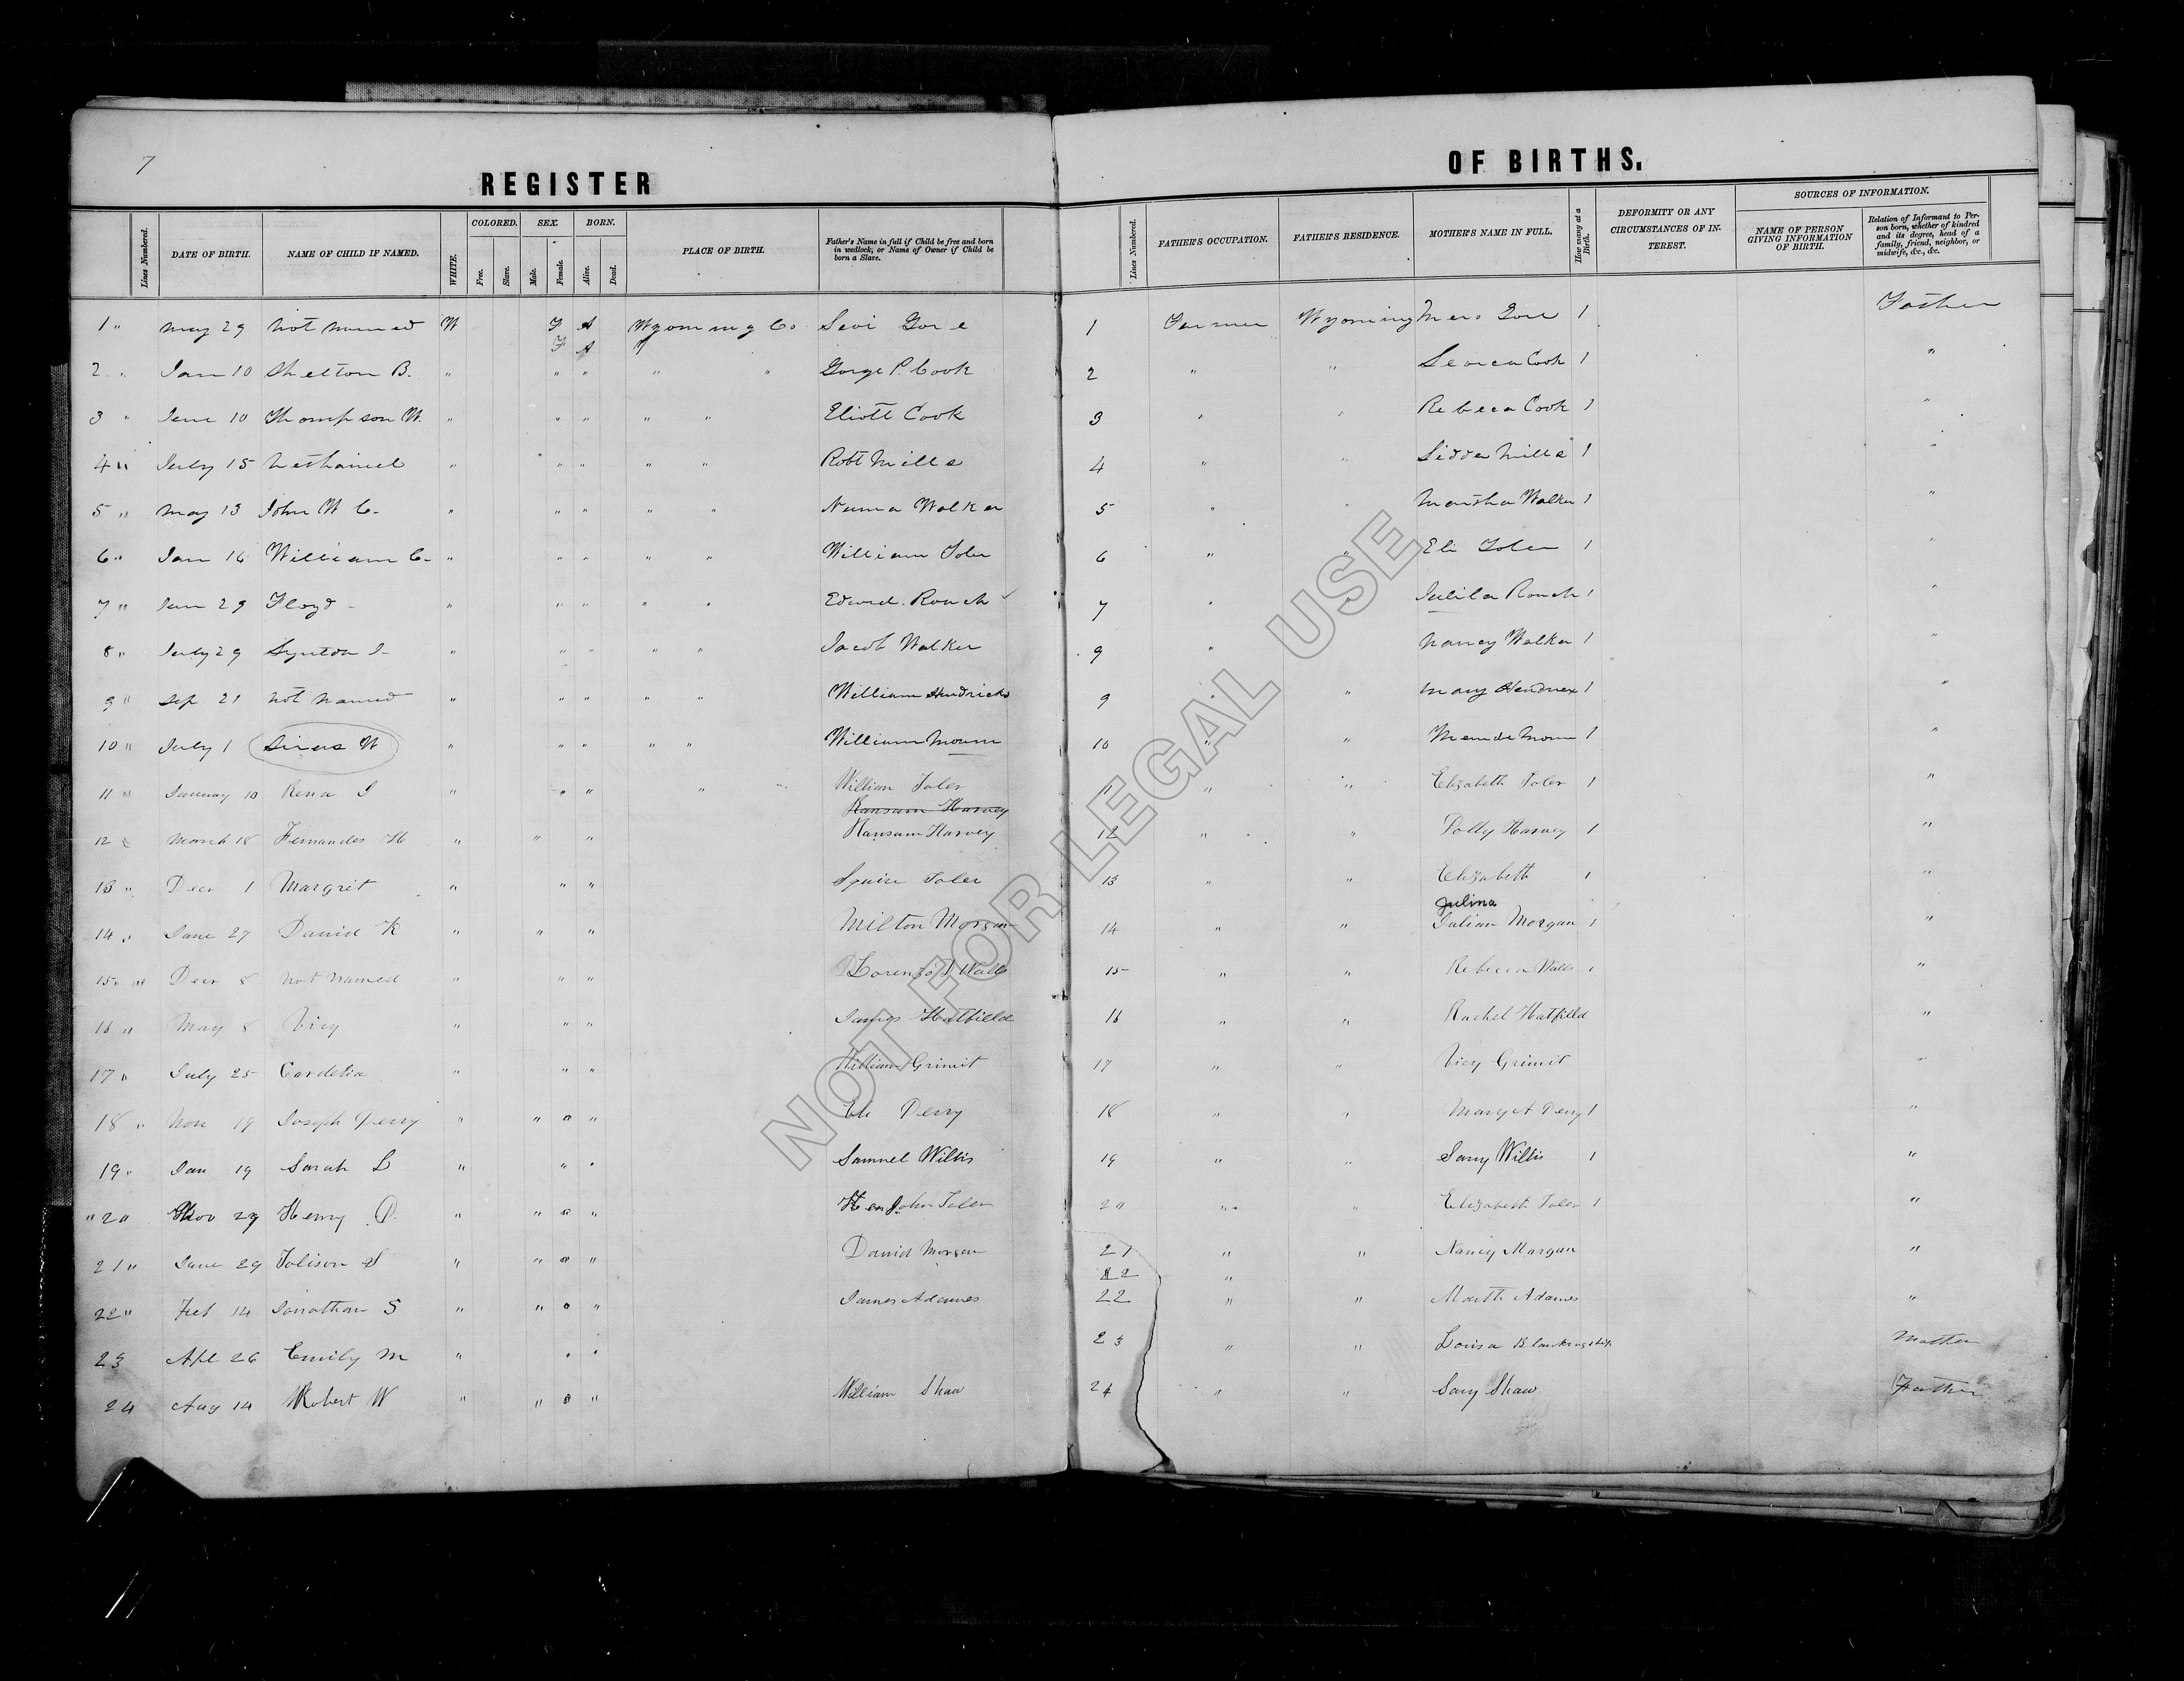 7
REGISTER
OF BIRTHS.
Lines Numbered. DATE OF BIRTH. NAME OF CHILD IF NAMED. WHITE. COLORED. Free. Slave. SEX. Male. Female. BORN. Alive. Dead. PLACE OF BIRTH. Father's Name in full if Child be free and born in wedlock, or Name of Owner if Child be born a Slave.
Lines Numbered. FATHER'S OCCUPATION. FATHER'S RESIDENCE. MOTHER'S NAME IN FULL. How many at a Birth. DEFORMITY OR ANY CIRCUMSTANCES OF INTEREST. SOURCES OF INFORMATION. NAME OF PERSON GIVING INFORMATION OF BIRTH. Relation of Informant to Person born, whether of kindred and its degree, head of a family, friend, neighbor, or midwife, &c., &c.
1 " May 29 Not named W F A Wyoming Co Levi Gore 1 Farmer Wyoming Gore 1 Father
F A
2 " Jan 10 Shelton B. " " " " " Gorge P. Cook 2 " " Cook 1 "
3 " 10 Thompson W. " " " " " Eliott Cook 3 " " Rebeca Cook 1 "
4 " July 15 " " " " " Robt Mills 4 " " Mills 1 "
5 " May 13 John W C- " " " " " Walker 5 " " Martha Walker 1 "
6 " Jan 16 William C- " " " " " William Toler 6 " " Eli Toler 1 "
7 " 29 Floyd - " " " " " Roach 7 " " Roach 1 "
8 " July 29 " " " " " Jacob Walker 9 " Nancy Walker 1 "
9 " Sep 21 not named " " " " " William Hendricks 9 " " Mary 1 "
10 " July 1 W " " " " " William 10 " " 1 "
11 " January 10 Rena " " " " William Toler 11 " " Elizabeth Toler 1 "
Ransam Harvey
12 " March 18 Fernandes H " " " Ransam Harvey 12 " " Polly Harvey 1 "
13 " Decr 1 Margret " " " Squire Toler 13 " " Elizabeth 1 "
Julina
14 " June 27 David K " " " Milton Morgan 14 " " Julian Morgan 1 "
15 " Decr 8 not named " " " Lorenzo D Walls 15 " " Rebecca Walls 1 "
16 " May 8 Vicy " " " James Hatfield 16 " " Rachel Hatfield "
17 " July 25 Cordelia " " " William Grimit 17 " " Vicy Grimit "
18 " Nov 19 Joseph Perry " " " Eli Perry 18 " " Mary A Perry 1 "
19 " Jan 19 Sarah L " " " Samuel Willis 19 " " Sary Willis 1 "
" 20 Nov 29 Henry P. " " " John Toler 20 " " Elizabeth Toler 1 "
21 " June 29 Tolison S " " " David Morgan 21 " " Nancy Morgan "
22 "
22 " Feb 14 Jonathan S " " " James Adames 22 " " Marth Adames "
23 Apl 26 Emily M " " " 23 " " Louisa Blankenship Mother
24 Aug 14 Robert W " " " William Shaw 24 " " Sary Shaw Father
NOT FOR LEGAL USE